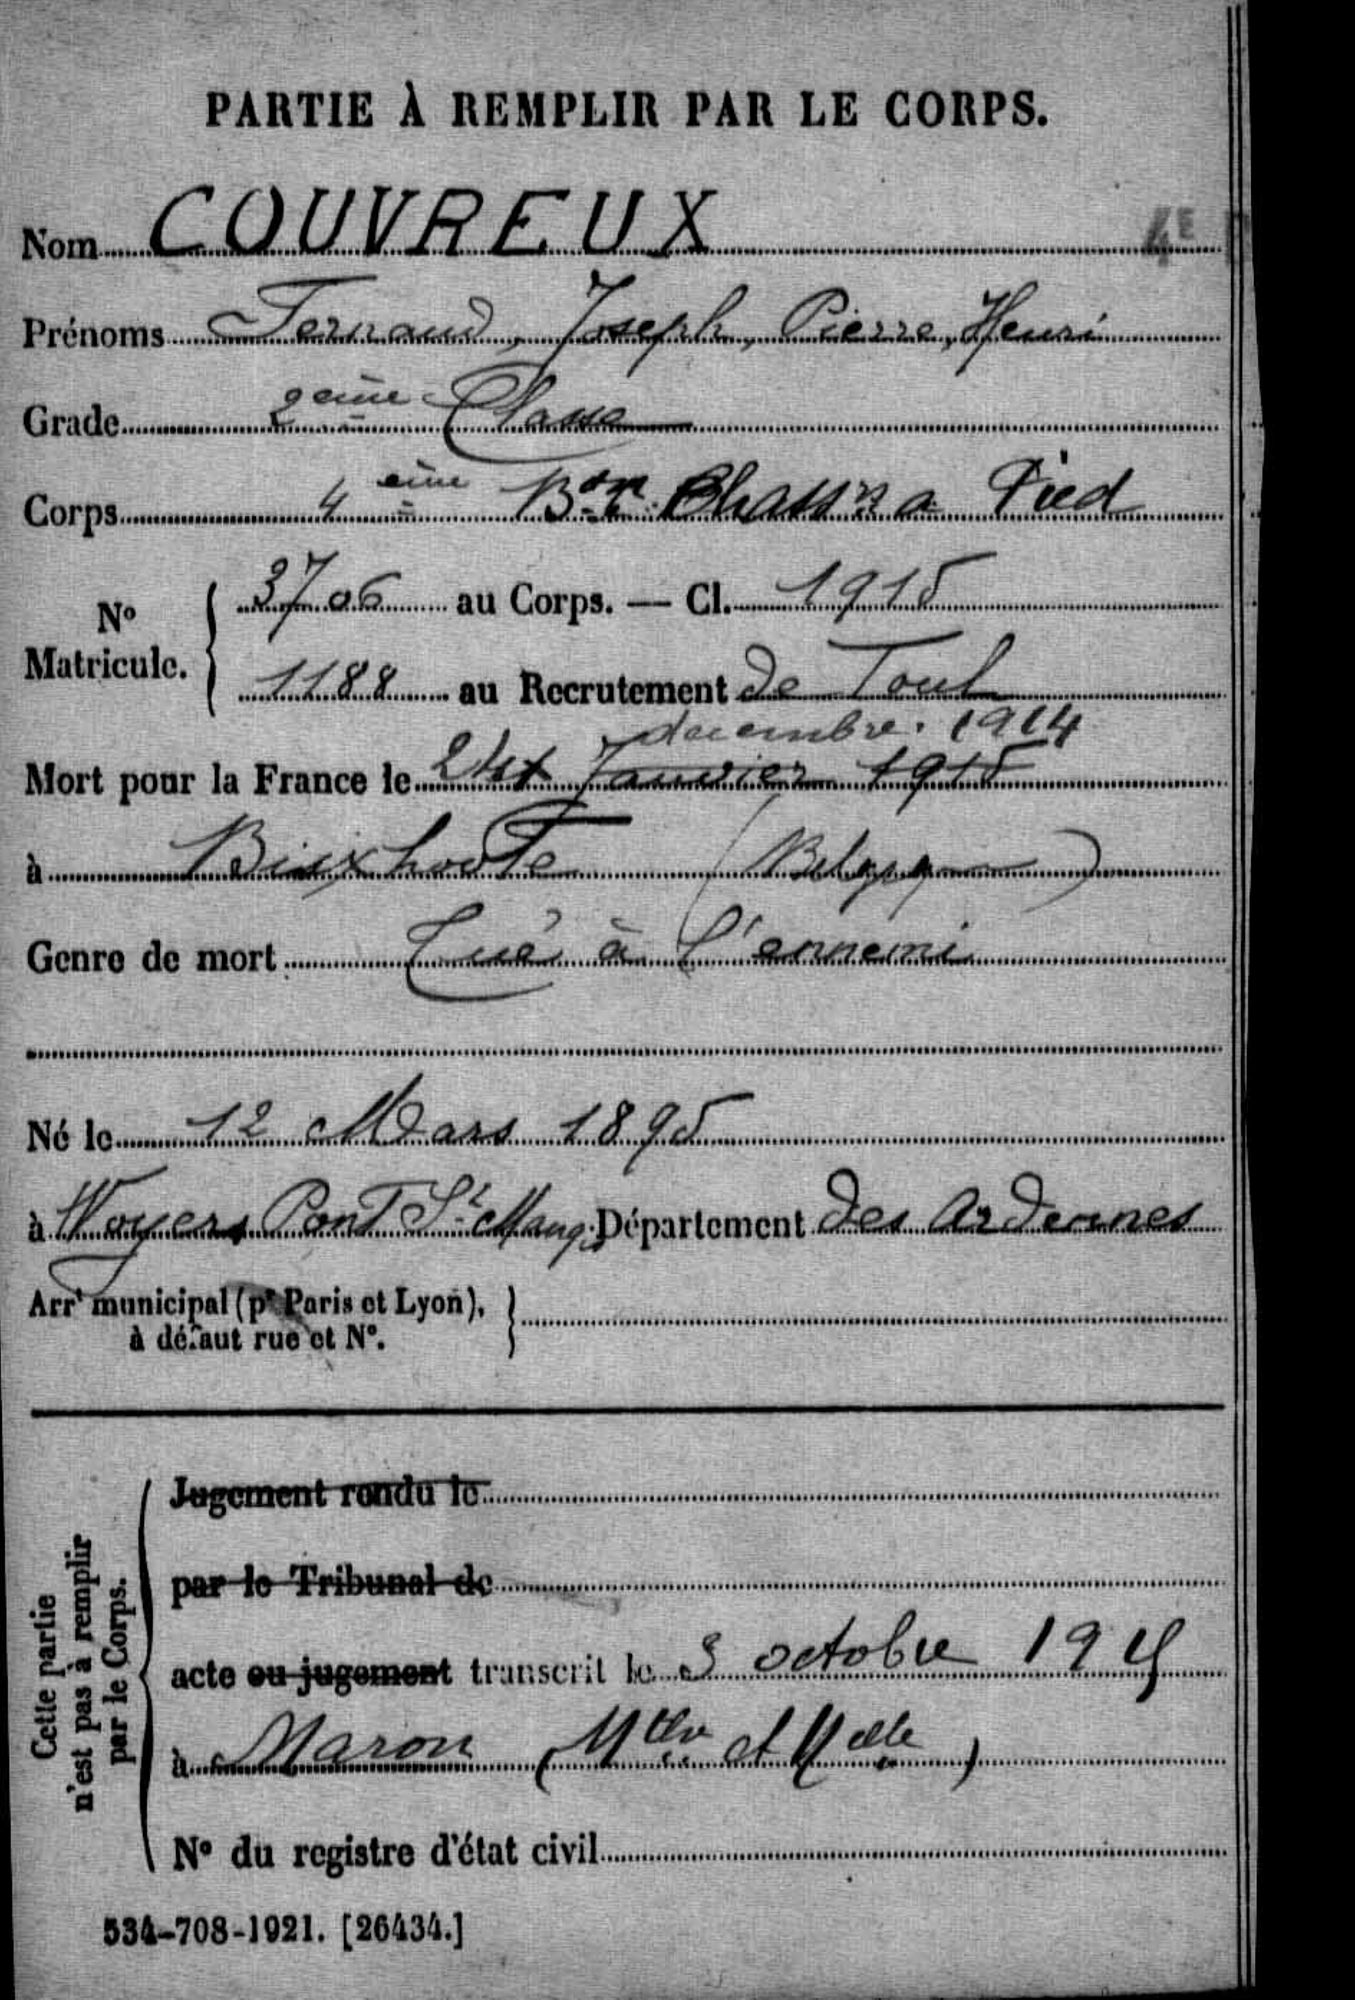 PARTIE À REMPLIR PAR LE CORPS.
Nom COUVREUX 4E
Prénoms Fernand, Joseph, Pierre, Henri
Grade 2ème Classe
Corps 4ème Bon Chassrs a Pied
No Matricule. 3706 au Corps. — Cl. 1915
1188 au Recrutement de Toul
decembre. 1914
Mort pour la France le 24 Janvier 1915
à Bixchoote (Belgique)
Genre de mort Tué à l'ennemi
Né le 12 Mars 1895
à Noyers Pont St Mangis Département des Ardennes
Arrt municipal (pr Paris et Lyon),
à défaut rue et No.
Cette partie
n'est pas à remplir
par le Corps.
Jugement rendu le
par le Tribunal de
acte ou jugement transcrit le 3 octobre 1915
à Maron (Mthe et Melle)
No du registre d'état civil
534-708-1921. [26434.]